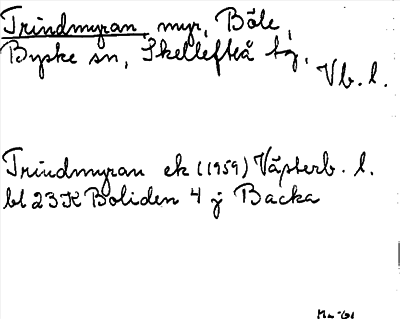 Trindmyran, myr, Böle,
Byske sn, Skellefteå tg,
Vb. l.
Trindmyran ek (1959) Västerb. l.
bl 23 K Boliden 4 j Backa